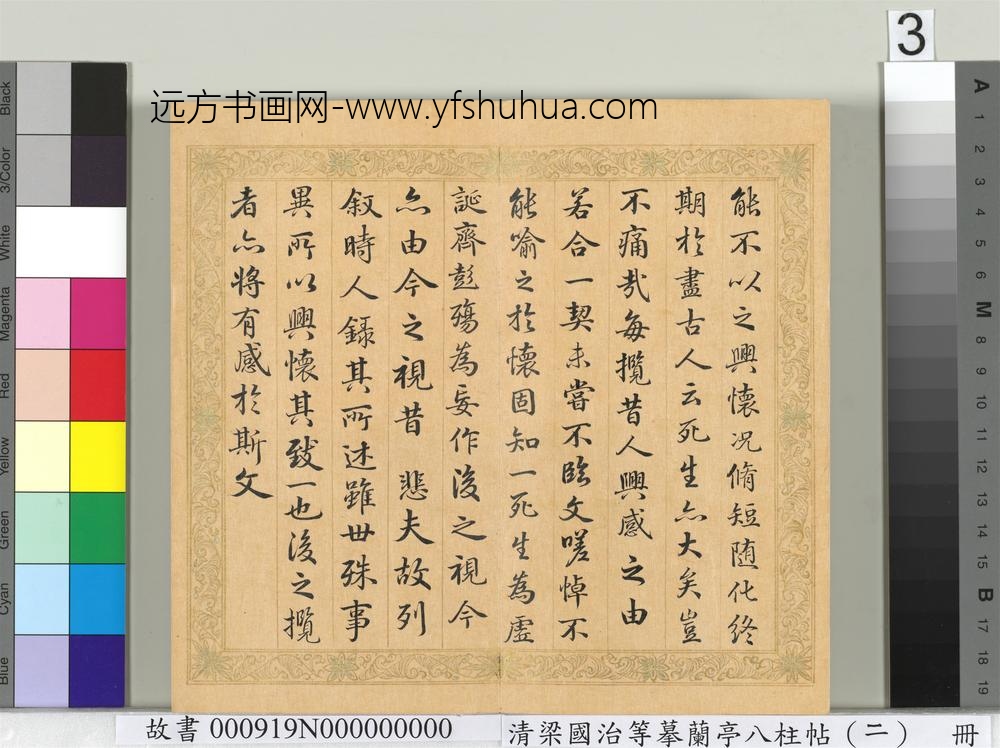 3
远方书画网-www.yfshuhua.com
能不以之興懷况脩短随化終
期於盡古人云死生亦大矣豈
不痛㢤每攬昔人興感之由
若合一契未嘗不臨文嗟悼不
能喻之於懷固知一死生為虛
誕齊彭殤為妄作後之視今
亦由今之視昔 悲夫故列
叙時人錄其所述雖世殊事
異所以興懷其致一也後之攬
者亦將有感於斯文
Black
3/Color
White
Magenta
Red
Yellow
Green
Cyan
Blue
A
1
2
3
4
5
6
M
8
9
10
11
12
13
14
15
B
17
18
19
故書 000919N000000000
清梁國治等摹蘭亭八柱帖（二） 冊